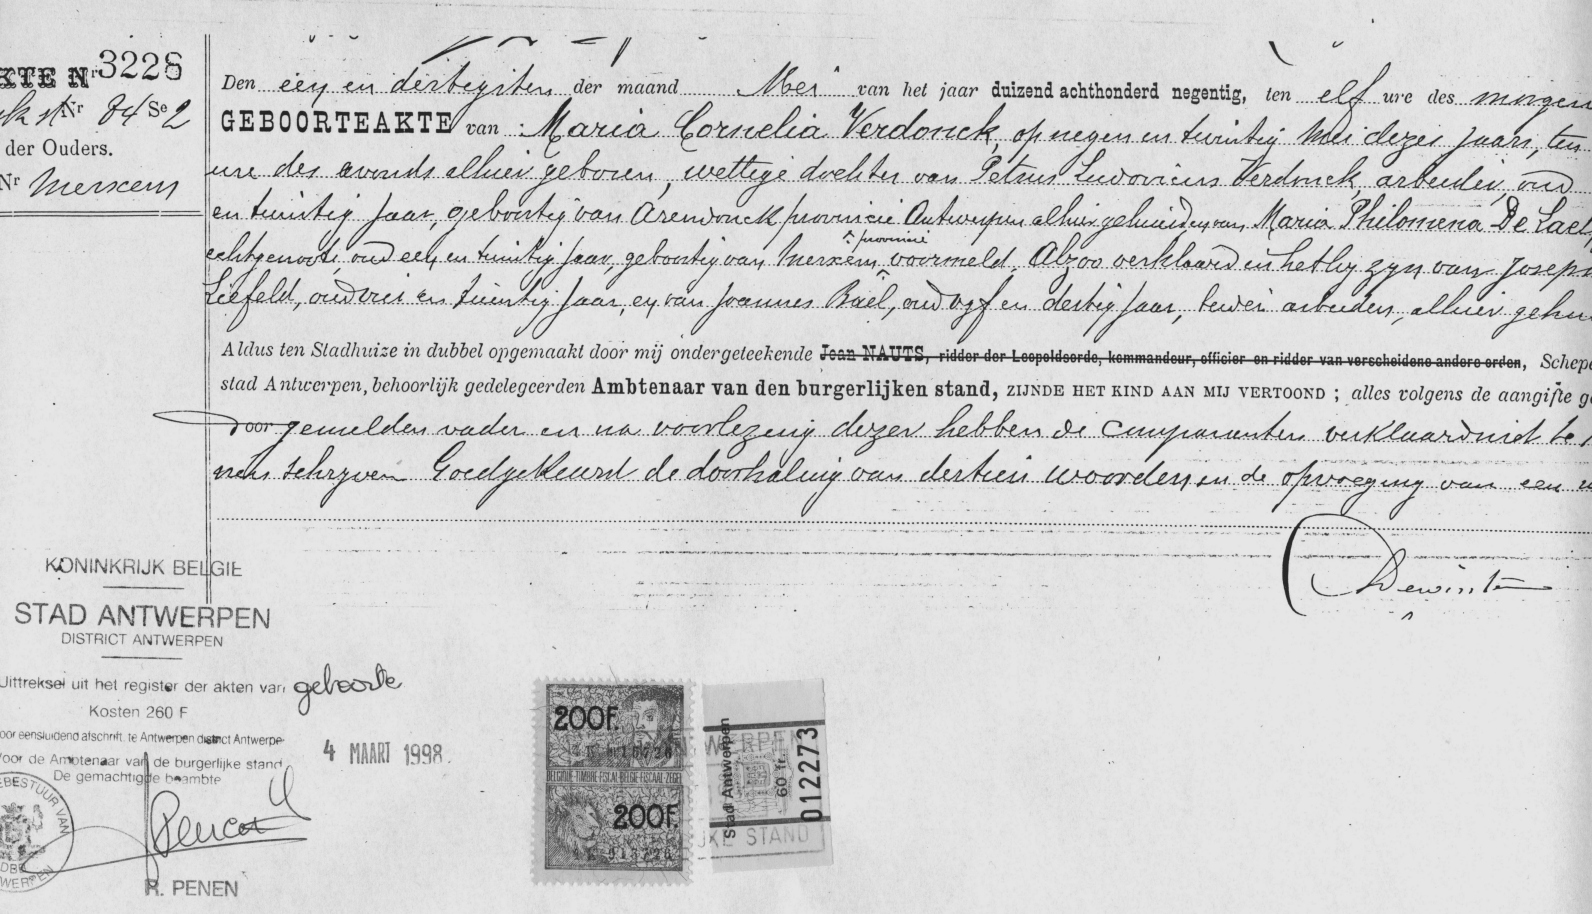 KTE Nr 3228
Nr 84 Se 2
der Ouders.
Nr Merxem
Den een en dertigsten der maand Mei van het jaar duizend achthonderd negentig, ten elf ure des morgen
GEBOORTEAKTE van Maria Cornelia Verdonck, op negen en twintig Mei dezes jaars, ten
ure des avonds alhier geboren, wettige dochter van Petrus Ludovicus Verdonck, arbeider, oud
en twintig jaar, geboortig van Arendonck provincie Antwerpen alhier gehuisd en van Maria Philomena De Laet,
provincie
echtgenoote, oud een en twintig jaar, geboortig van Merxem, voormeld. Alzoo verklaard in het by zyn van Joseph
Liefeld, oud drie en twintig jaar, en van Joannes Baël, oud vyf en dertig jaar, beiden arbeiders, alhier gehui
Aldus ten Stadhuize in dubbel opgemaakt door mij ondergeteekende Jean NAUTS, ridder der Leopoldsorde, kommandeur, officier en ridder van verscheidene andere orden, Schepe
stad Antwerpen, behoorlijk gedelegeerden Ambtenaar van den burgerlijken stand, ZIJNDE HET KIND AAN MIJ VERTOOND; alles volgens de aangifte ge
Door gemelden vader en na voorlezing dezer hebben de comparanten verklaard niet te
nen schryven Goedgekeurd de doorhaling van dertien woorden en de opvoeging van een
Dewinter
KONINKRIJK BELGIE
STAD ANTWERPEN
DISTRICT ANTWERPEN
Uittreksel uit het register der akten van geboorte
Kosten 260 F
oor eensluidend afschrift. te Antwerpen district Antwerpe
Voor de Ambtenaar van de burgerlijke stand
De gemachtigde beambte
4 MAART 1998
EBESTUUR VAN
R. PENEN
200F.
BELGIQUE-TIMBRE-FISCAL BELGIE-FISCAAL-ZEGEL
200F.
Stad Antwerpen
60 fr.
012273
WERPEN
JKE STAND